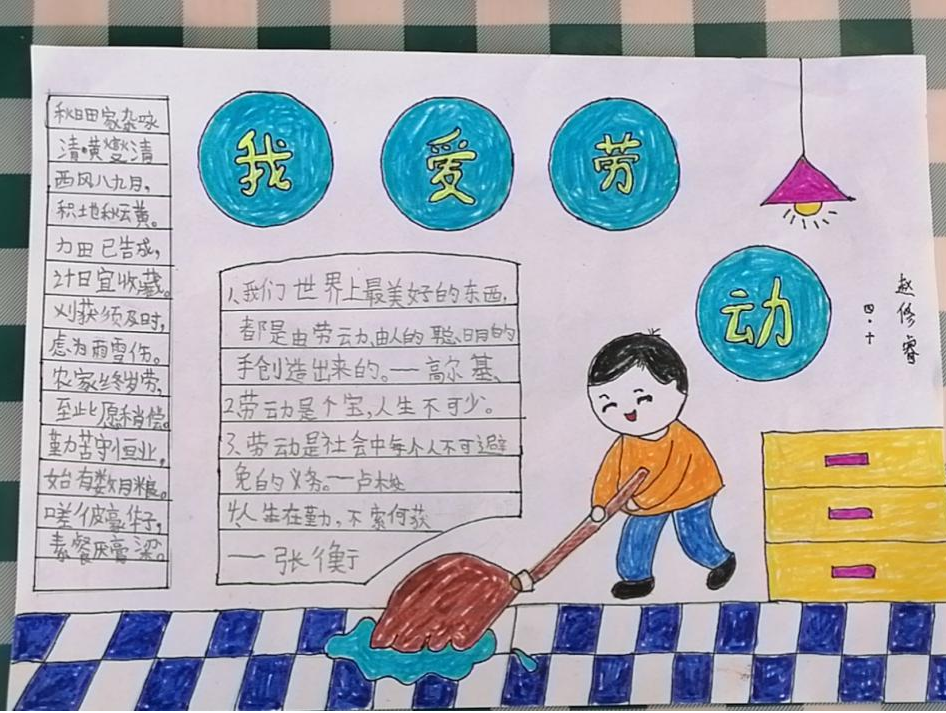 我
爱
劳
动
秋日田家杂咏
清·黄燮清
西风八九月,
积地秋云黄。
力田已告成,
计日宜收藏。
刈获须及时,
虑为雨雪伤。
农家终岁劳,
至此愿稍偿。
勤苦守恒业,
始有数月粮。
嗟彼豪华子,
素餐厌膏梁。
1、我们世界上最美好的东西,
都是由劳动、由人的聪明的
手创造出来的。一高尔基、
2.劳动是个宝,人生不可少。
3、劳动是社会中每个人不可避
免的义务。一卢梭
4、人生在勤,不索何获
一张衡
赵修睿
四·十